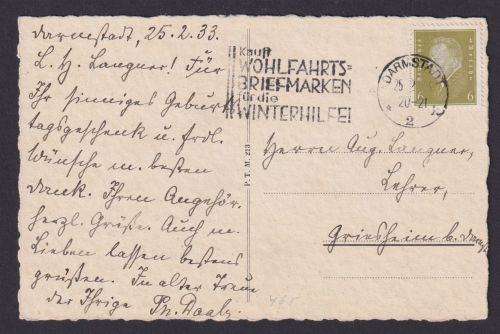 Darmstadt, 25.2.33.
L. H. Langner! Für
Ihr sinniges Geburts
tagsgeschenk u. frdl.
Wünsche m. besten
Dank. Ihren Angehör.
herzl. Grüße. Auch m.
Lieben lassen bestens
grüßen. In alter Treue
der Ihrige Ph.
Kauft
WOHLFAHRTS=
BRIEFMARKEN
für die
WINTERHILFE!
DARMSTADT
25
20-21
* 2
6 6
P. T. M. 213
Herrn Aug. Langner,
Lehrer,
Griesheim b.